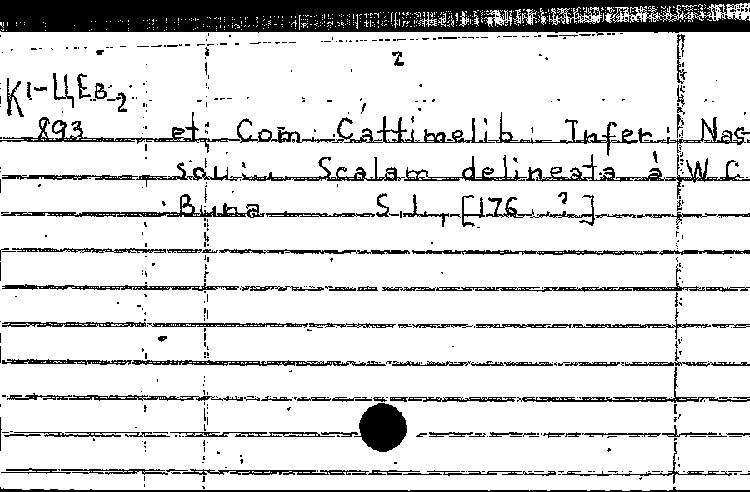 2
К1-ЦЕВ-2
893 et Com. Cattimelib. Infer. Nas
soli.. Scalam delineata à W C
Buna S.l., [176 ?]